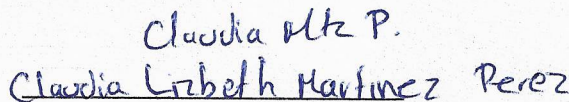 Claudia Mtz P.
Claudia Lizbeth Martinez Perez